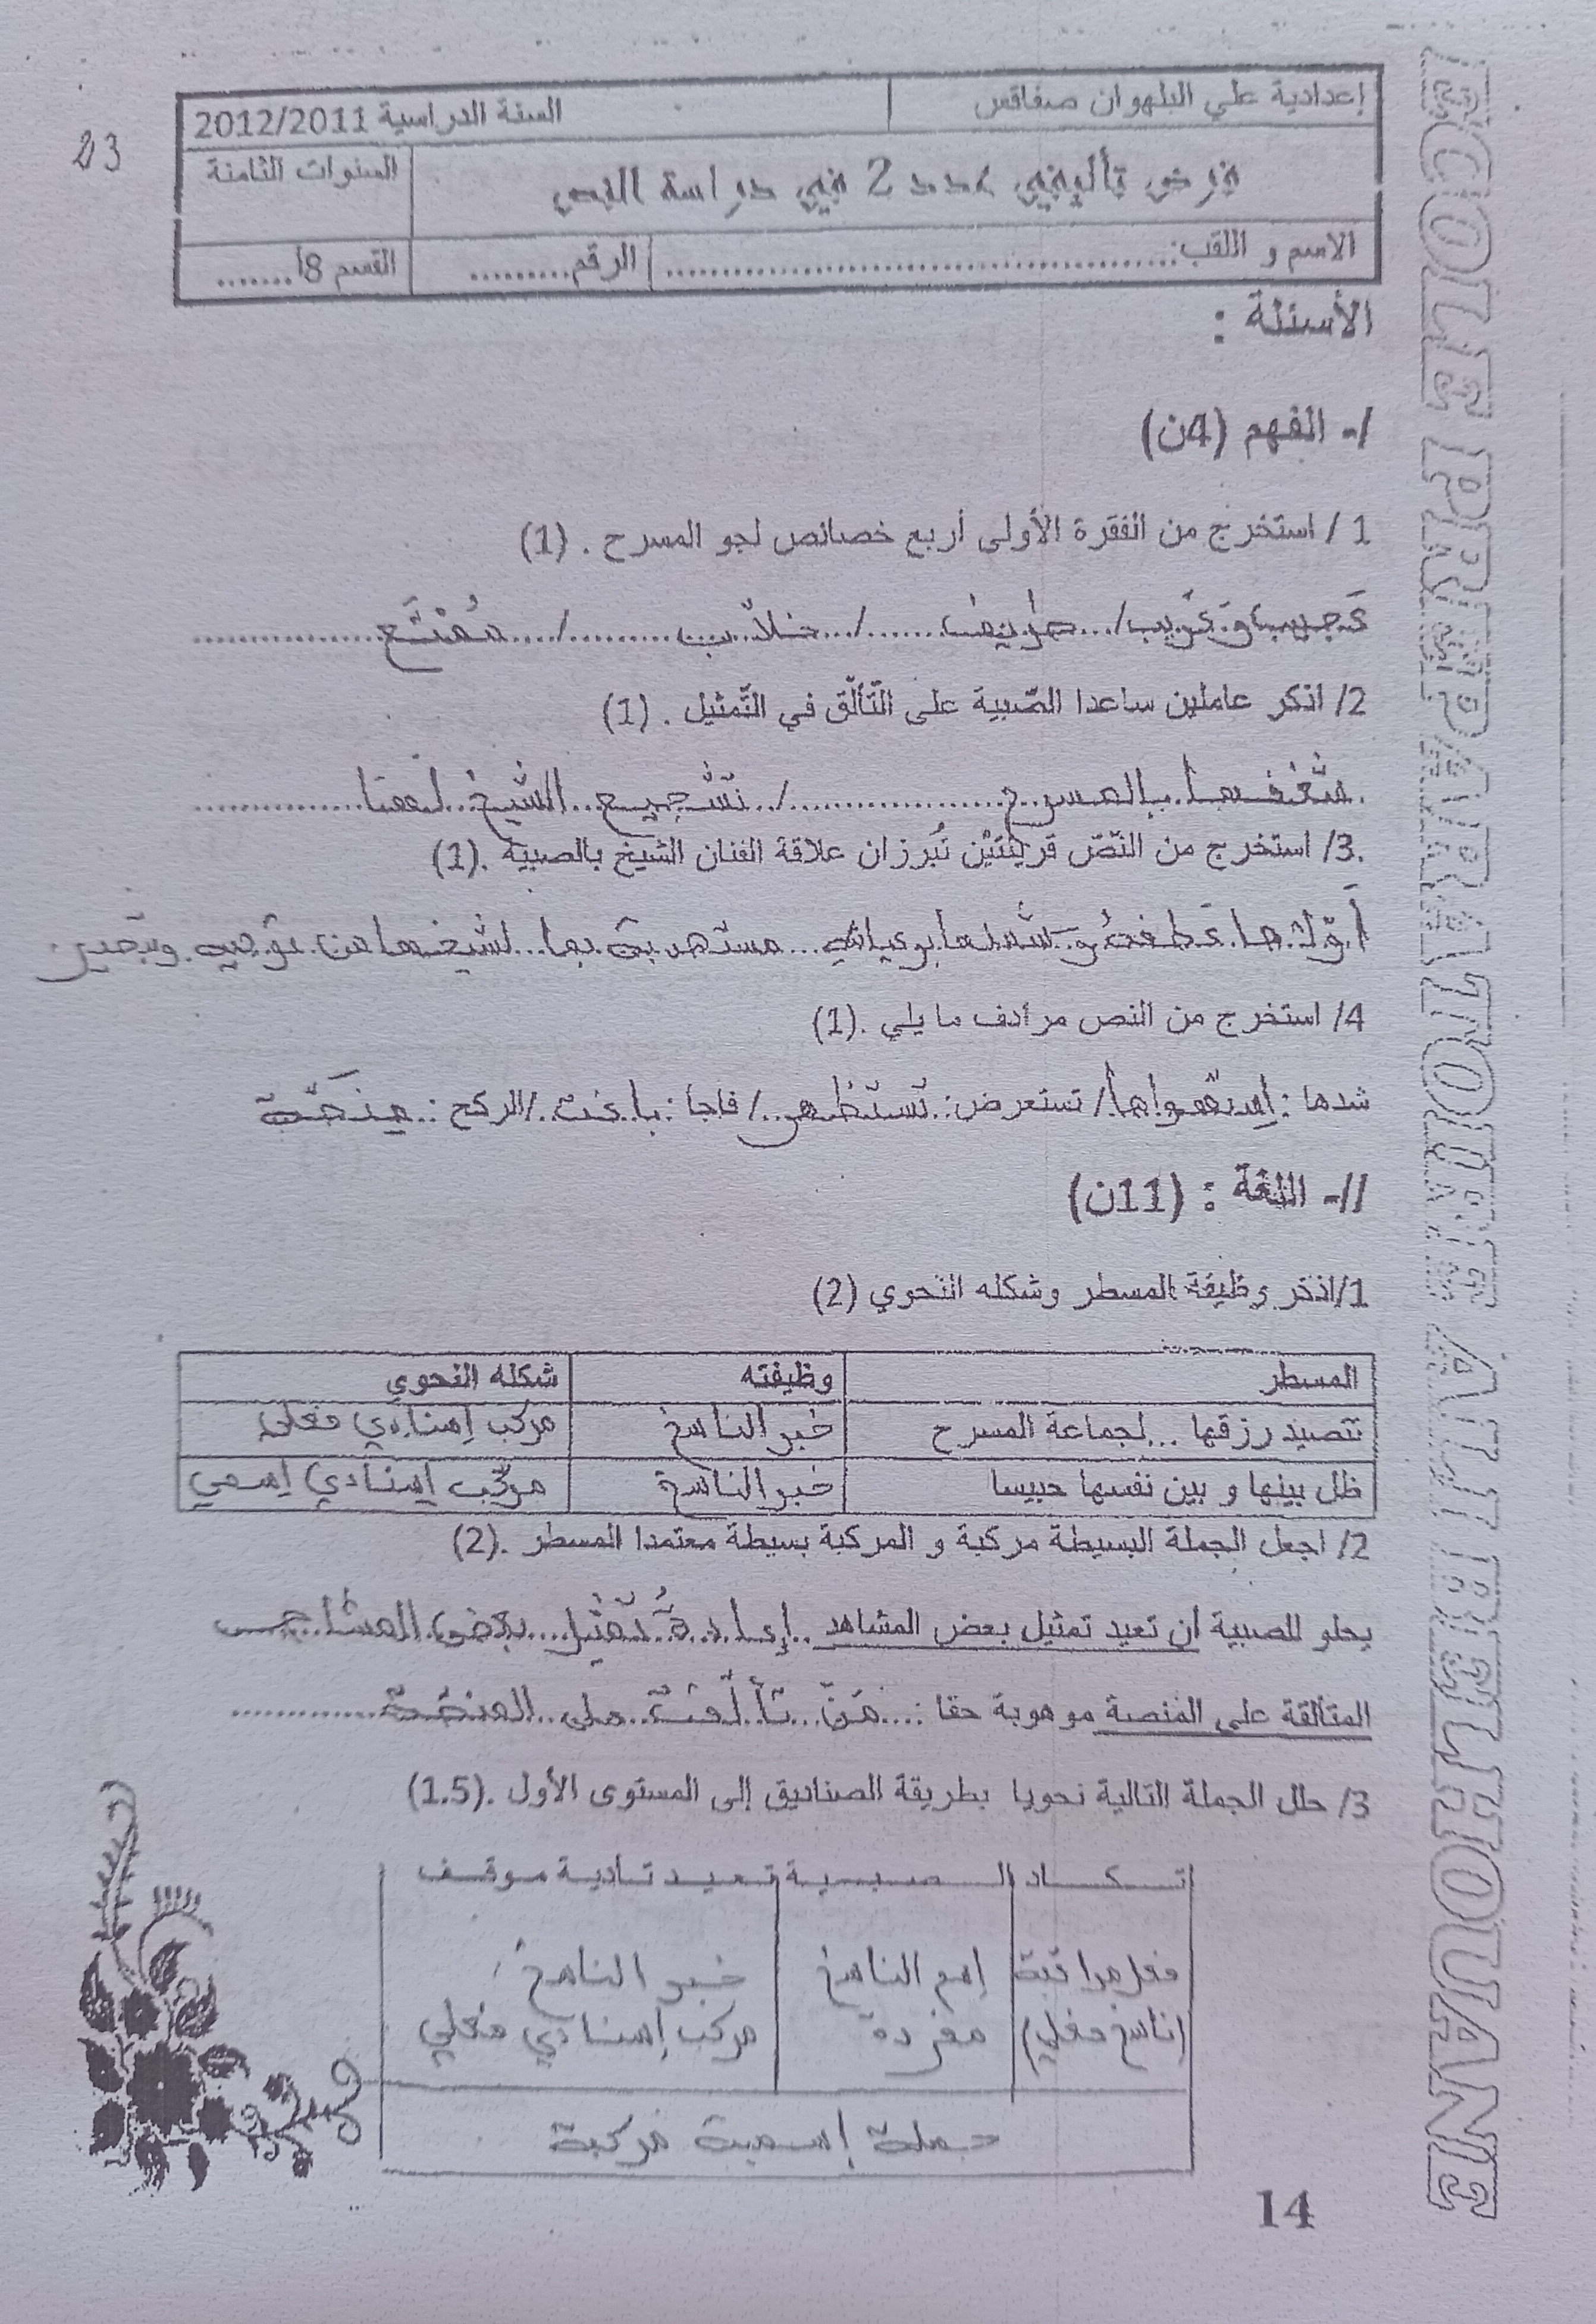 إعدادية علي البلهوان صفاقس السنة الدراسية 2012/2011
فرض تأليفي عدد 2 في دراسة النص السنوات الثامنة
الاسم و اللقب: الرقم القسم 8أ
23
الأسئلة :
I- الفهم (4ن)
1 / استخرج من الفقرة الأولى أربع خصائص لجو المسرح . (1)
عَجيب وَغَريب / طريف / خلاّب / مُمْتَع
2/ اذكر عاملين ساعدا الصّبية على التّألّق في التّمثيل . (1)
شَغَفها بالمسرح / تشجيع الشّيخ لها
3/ استخرج من النّصّ قرينتيْن تُبرزان علاقة الفنان الشيخ بالصبية .(1)
عَطفهُ و مستهدية بما لشيخها من توجيه
4/ استخرج من النص مرادف ما يلي .(1)
شدها : استهواها / تستعرض : تستظهر / فاجأ : باغت / الركح : منصّة
II- اللغة : (11ن)
1/اذكر وظيفة المسطر وشكله النحوي (2)
المسطر وظيفته شكله النحوي
تتصيد رزقها ... لجماعة المسرح خبر الناسخ مركب إسنادي فعلي
ظل بينها و بين نفسها حبيسا خبر الناسخ مركّب إسنادي إسمي
2/ اجعل الجملة البسيطة مركبة و المركبة بسيطة معتمدا المسطر .(2)
يحلو للصبية أن تعيد تمثيل بعض المشاهد إعادةُ تمثيل بعض
المتألقة على المنصة موهوبة حقا : مَنْ تألّقت على المنصّة
3/ حلل الجملة التالية نحويا بطريقة الصناديق إلى المستوى الأول .(1.5)
تكاد الصبية تعيد تأدية موقف
فعل مقاربة اسم الناسخ خبر الناسخ
(ناسخ فعلي) مفردة مركب إسنادي فعلي
جملة إسمية مركبة
14
ECOLE PREPARATOIRE ALI BELHOUANE